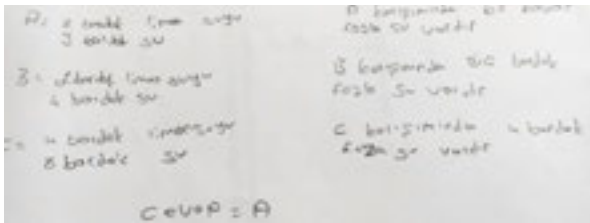 A= 2 bardak limon suyu
3 bardak su
B= 2 bardak limon suyu
4 bardak su
4 bardak limon suyu
8 bardak su
A karışımında bir bardak
fazla su vardır
B karışımında bardak
fazla su vardır
C karışımında 4 bardak
fazla su vardır
CEVAP = A